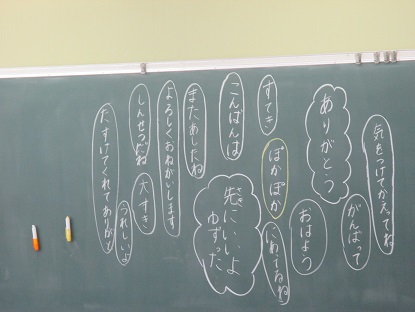 気をつけてかえってね
がんばって
ありがとう
おはよう
すてき
ぽかぽか
こんばんは
先にいいよ
ゆずった
またあしたね
よろしくおねがいします
しんせつだね
大すき
うれしいよ
たすけてくれてありがとう